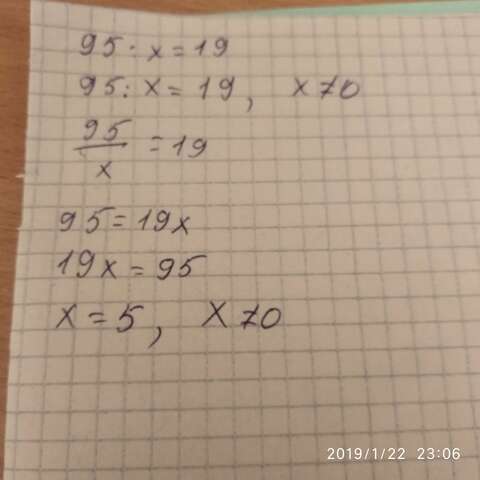 95 : x = 19
95 : x = 19, x ≠ 0
95/x = 19
95 = 19x
19x = 95
x = 5, x ≠ 0
2019/1/22 23:06